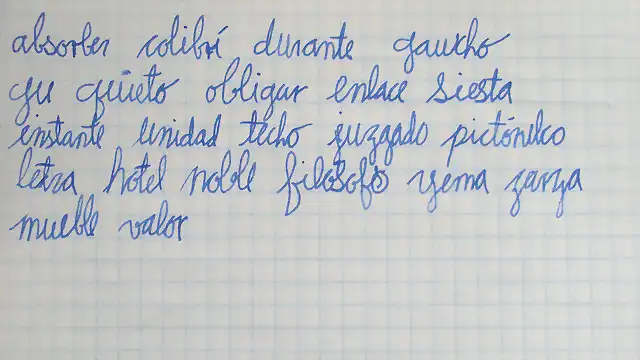 absorber colibrí durante gaucho
quieto obligar enlace siesta
instante unidad techo juzgado
letra hotel noble filósofo yema zarza
mueble valor